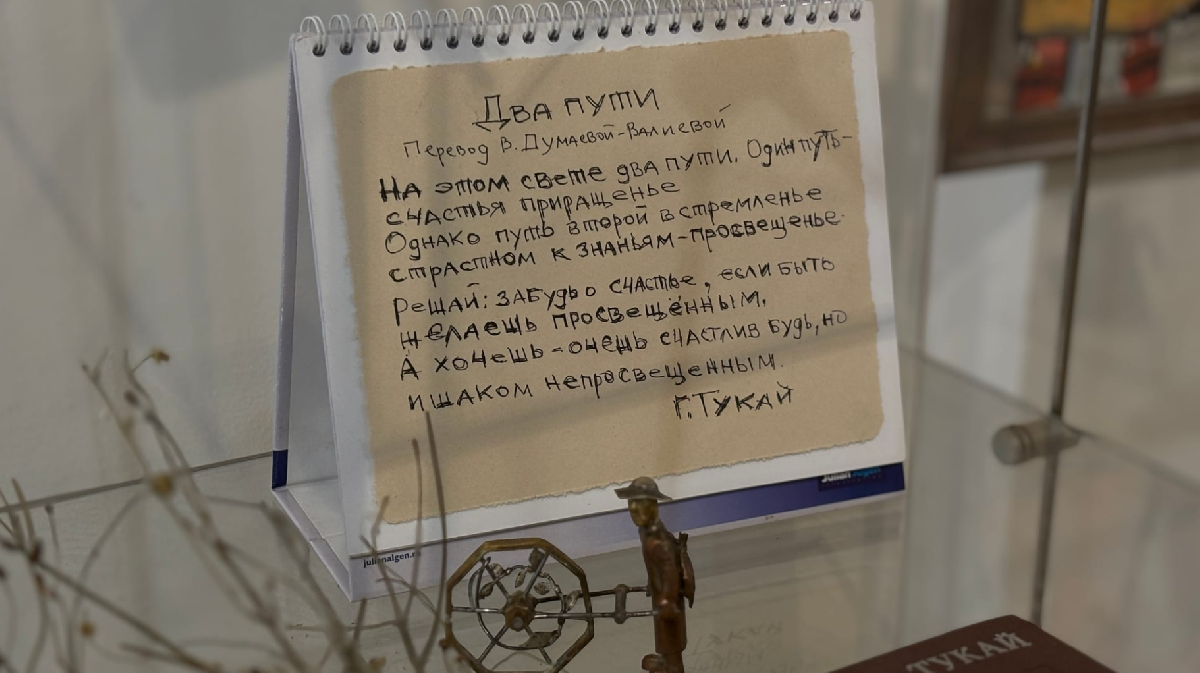 Два пути
Перевод В. Думаевой-Валиевой
На этом свете два пути. Один путь-
счастья приращенье
Однако путь второй в стремленье
страстном к знаньям-просвещенье.
Решай: забудь о счастье, если быть
желаешь просвещённым.
А хочешь-очень счастлив будь, но
ишаком непросвещенным.
Г. Тукай
ТУКАЙ